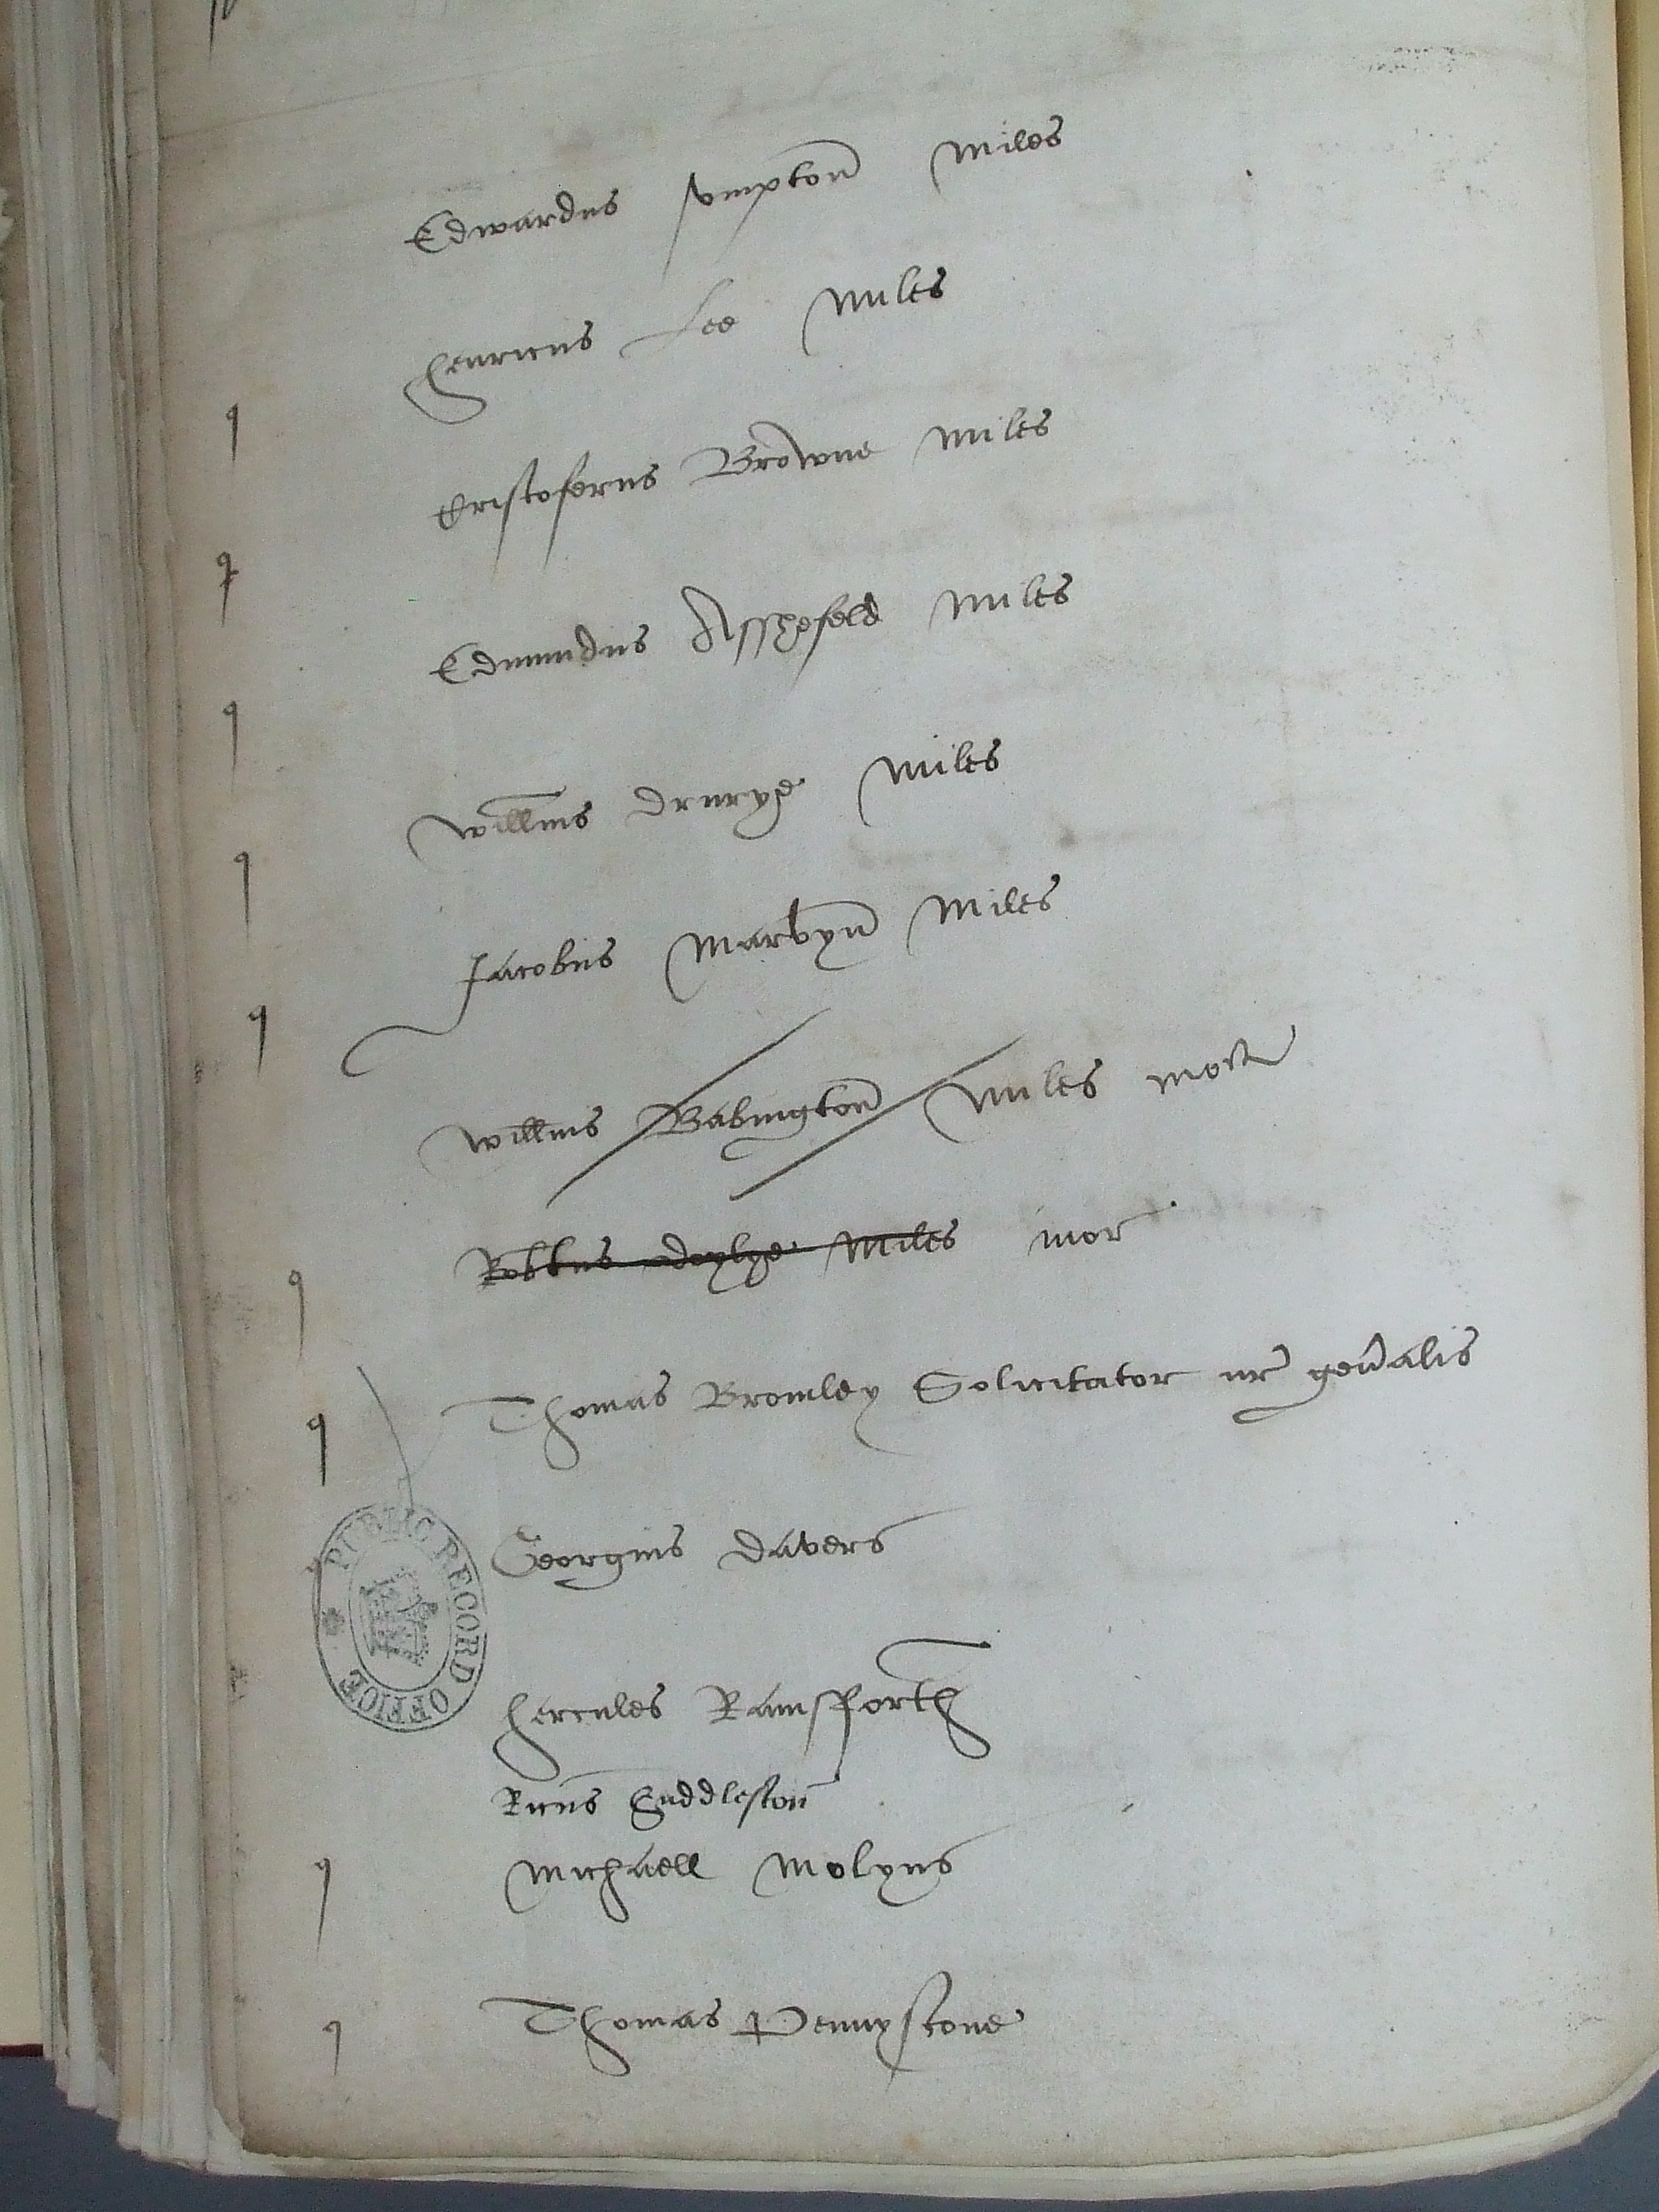 Edwardus vmpton miles
Henricus Lee miles
Cristoferus Browne miles
Edmundus Asshefeld miles
Willms Drurye miles
Jacobus Marvyn miles
Willms Babington miles mort
Robtus Doylye miles mor
Thomas Bromley Solicitator nr genalis
Georgius Davers
Hercules Raynsforth
Ricus Huddleston
Michaell Molyns
Thomas Penystone
PUBLIC RECORD OFFICE